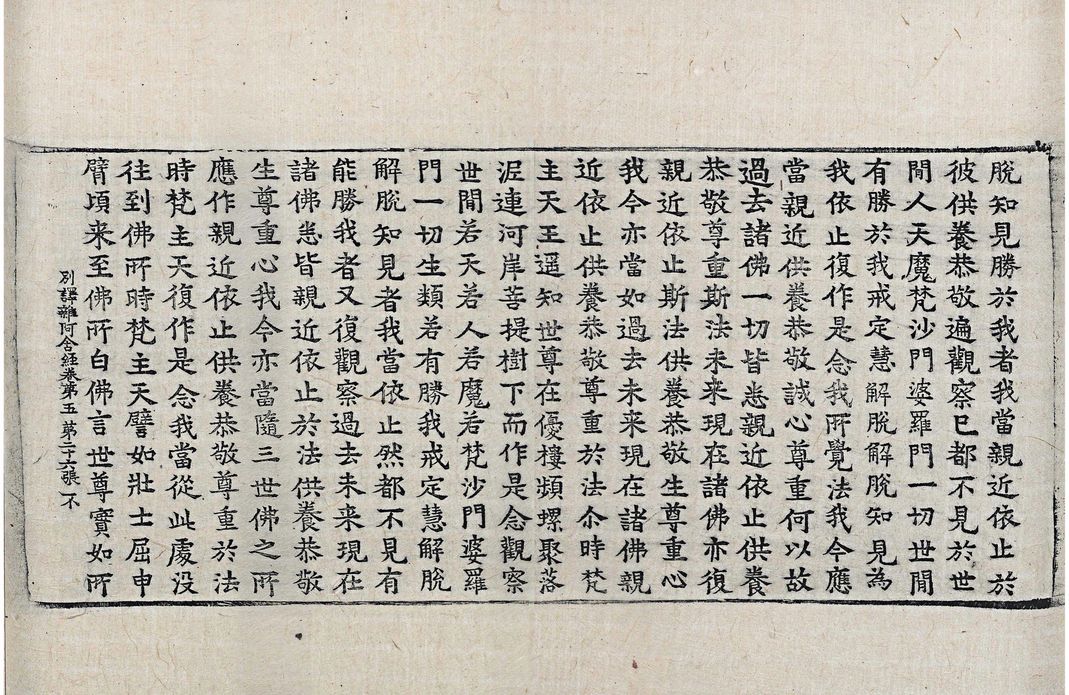 脫知見勝於我者我當親近依止於
彼供養恭敬遍觀察已都不見於世
閒人天魔梵沙門婆羅門一切世閒
有勝於我戒定慧解脫解脫知見為
我依止復作是念我所覺法我今應
當親近供養恭敬誠心尊重何以故
過去諸佛一切皆悉親近依止供養
恭敬尊重斯法未来現在諸佛亦復
親近依止斯法供養恭敬生尊重心
我今亦當如過去未来現在諸佛親
近依止供養恭敬尊重於法尒時梵
主天王遥知世尊在優樓頻螺聚落
泥連河岸菩提樹下而作是念觀察
世閒若天若人若魔若梵沙門婆羅
門一切生類若有勝我戒定慧解脫
解脫知見者我當依止然都不見有
能勝我者又復觀察過去未来現在
諸佛悉皆親近依止於法供養恭敬
生尊重心我今亦當隨三世佛之所
應作親近依止供養恭敬尊重於法
時梵主天復作是念我當從此處没
往到佛所時梵主天譬如壯士屈申
臂項来至佛所白佛言世尊實如所
別譯雜阿含經卷第五 第二十六張 不